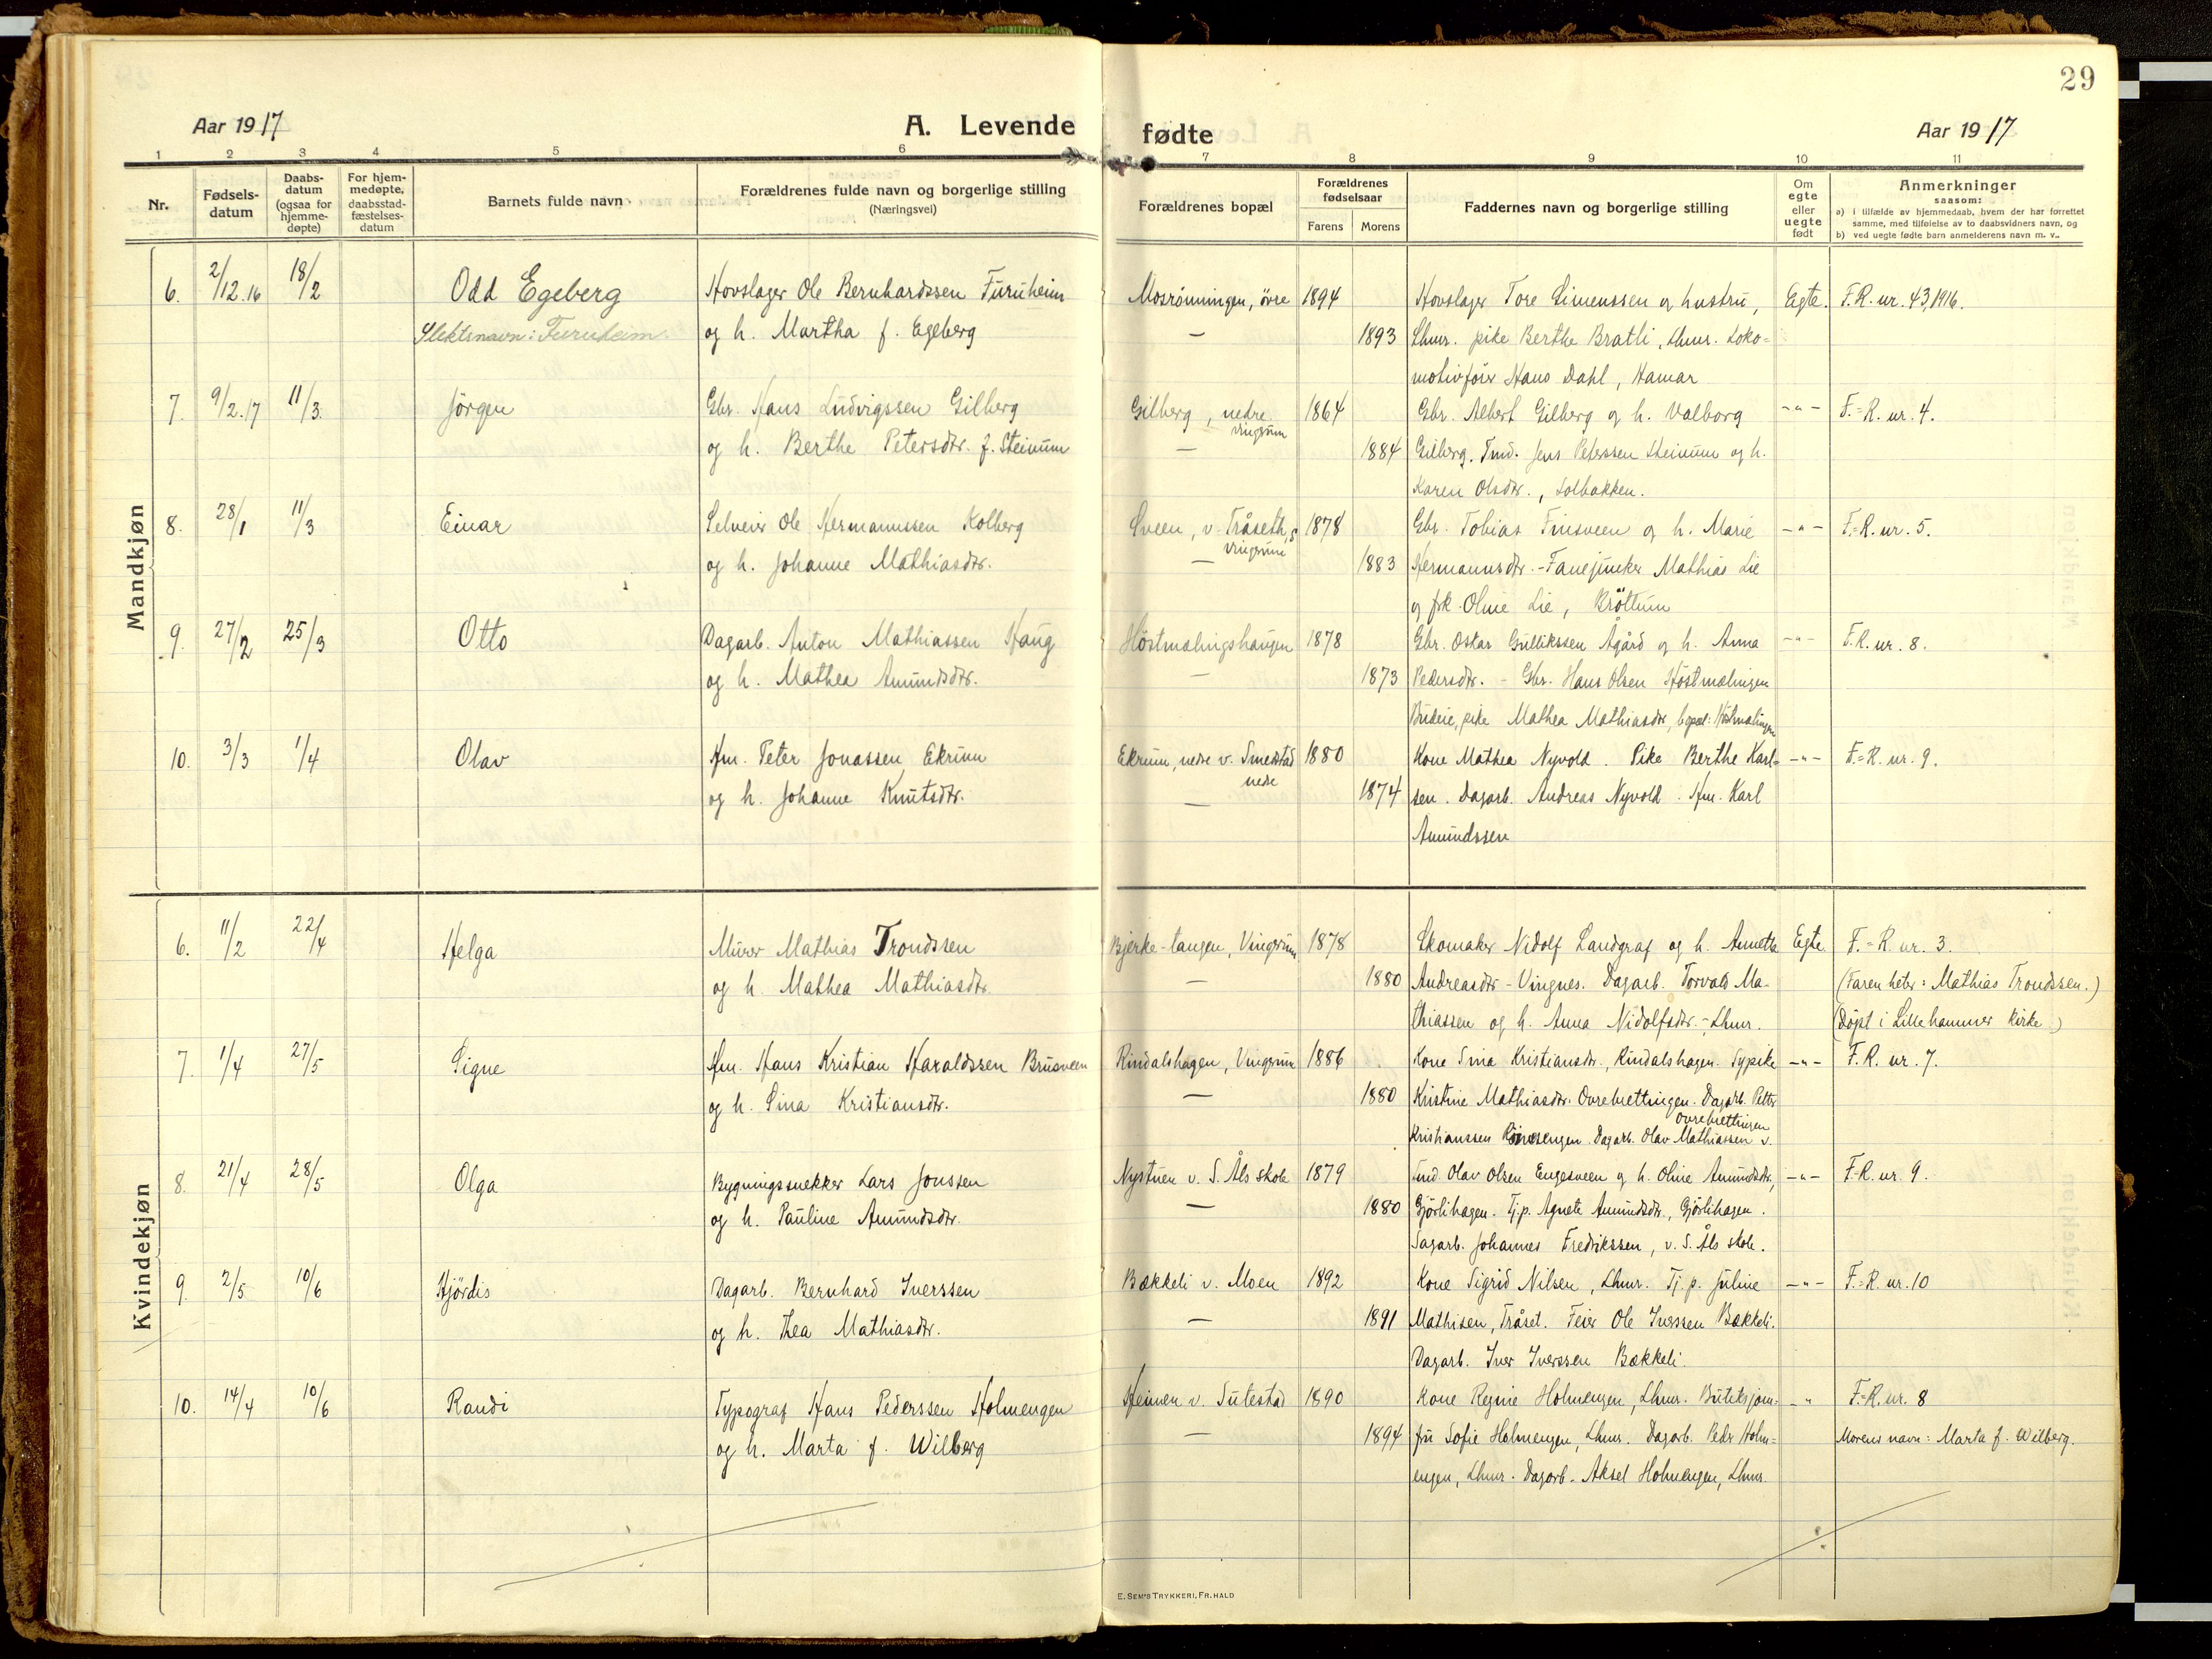 29
Aar 1917
A. Levende
fødte
Aar 1917
1 2 3 4 5 6 7 8 9 10 11
Nr.
Fødsels-
datum
Daabs-
datum
(ogsaa for
hjemme-
døpte)
For hjem-
medøpte,
daabsstad-
fæstelses-
datum
Barnets fulde navn
Forældrenes fulde navn og borgerlige stilling
(Næringsvei)
Forældrenes bopæl
Forældrenes
fødselsaar
Farens
Morens
Faddernes navn og borgerlige stilling
Om
egte
eller
uegte
født
Anmerkninger
saasom:
a) i tilfælde av hjemmedaab, hvem der har forrettet
samme, med tilføielse av to daabsvidners navn, og
b) ved uegte fødte barn anmelderens navn m. v..
Mandkjøn
6. 2/12.16 18/2 Odd Egeberg Hovslager Ole Bernhardssen Furuheim Mosrønningen, øvre 1894 Hovslager Tore Simenssen og hustru, Egte. F.R. nr. 43, 1916.
Slektsnavn: Furuheim. og h. Martha f. Egeberg — 1893 Lhmr. pike Berthe Bratli, Lhmr. Loko=
motivfører Hans Dahl, Hamar
7. 9/2.17 11/3. Jörgen Gbr. Hans Ludvigssen Gilberg Gilberg, nedre 1864 Gbr. Albert Gilberg og h. Valborg -"- F.=R. nr. 4.
Vingrum
og h. Berthe Petersdtr. f. Steinum — 1884 Gilberg. Tmd. Jens Peterssen Steinum og h.
Karen Olsdtr., Solbakken.
8. 28/1 11/3 Einar Selveier Ole Hermanussen Kolberg Sveen, v. Tråseth, 1878 Gbr. Tobias Finsveen og h. Marie -"- F.=R. nr. 5.
Vingrum
og h. Johanne Mathiasdtr. — 1883 Hermannsdtr. - Fanejunker Mathias Lie
og frk. Oline Lie, Bröttum
9. 27/2 25/3 Otto Dagarb. Anton Mathiassen Haug Höstmælingshaugen 1878 Gbr. Oskar Gullikssen Ågård og h. Anna -"- F.R. nr. 8.
og h. Mathea Amundsdtr. — 1873 Pedersdtr. - Gbr. Hans Olsen Höstmælingen
Budeie, pike Mathea Mathiasdtr, bopæl: Höstmælingen
10. 3/3 1/4 Olav Hm. Peter Jonassen Ekrum Ekrum, nedre v. Smestad 1880 Kone Mathea Nyvold. Pike Berthe Karl= -"- F.=R. nr. 9.
nedre
og h. Johanne Knutsdtr. — 1874 sen. Dagarb. Andreas Nyvold. Hm. Karl
Amundssen
Kvindekjøn
6. 11/2 22/4 Helga Murer Mathias Trondssen Bjerke-tangen, Vingrum 1878 Skomaker Nidolf Landgraf og h. Annette Egte. F.=R. nr. 3.
og h. Mathea Mathiasdtr. — 1880 Andreasdtr - Vingnes. Dagarb. Torvald Ma- (Faren heter: Mathias Trondssen.)
thiassen og h. Anna Nidolfsdtr. - Lhmr. (Døpt i Lillehammer kirke.)
7. 1/4 27/5 Signe Hm. Hans Kristian Haraldssen Brusveen Rindalshagen, Vingrum 1886 Kone Sina Kristiansdtr., Rindalshagen. Sypike -"- F.R. nr. 7.
og h. Sina Kristiansdtr. — 1880 Kristine Mathiasdtr. Ovrebrettingen. Dagarb. Petter
ovrebrettingen
Kristianssen Dagarb. Olav Mathiassen v.
8. 21/4 28/5 Olga Bygningssnekker Lars Jonssen Nystuen v. S. Åls skole 1879 Tmd Olav Olsen Engesveen og h. Oline Amundsdtr., -"- F.R. nr. 9.
og h. Pauline Amundsdtr. — 1880 Gjörlihagen. Tj.p. Agnete Amundsdtr., Gjörlihagen.
Sagarb. Johannes Fredrikssen, v. S. Åls skole.
9. 2/5 10/6 Hjördis Dagarb. Bernhard Iverssen Bækkeli v. Moen 1892 Kone Sigrid Nilsen, Lhmr. Tj. p. Juline -"- F.=R. nr. 10
og h. Thea Mathiasdtr. — 1891 Mathisen, Tråset. Feier Ole Iverssen Bækkeli.
Dagarb. Iver Iverssen Bækkeli.
10. 14/4 10/6 Randi Typograf Hans Pederssen Holmengen Heimen v. Sutestad 1890 Kone Regine Holmengen, Lhmr. Butiksjom- -"- F.=R. nr. 8
og h. Marta f. Wilberg — 1894 fru Sofie Holmengen, Lhmr. Dagarb. Peder Holm= Morens navn: Marta f. Wilberg.
engen, Lhmr. Dagarb. Aksel Holmengen, Lhmr.
E. SEM'S TRYKKERI, FR.HALD